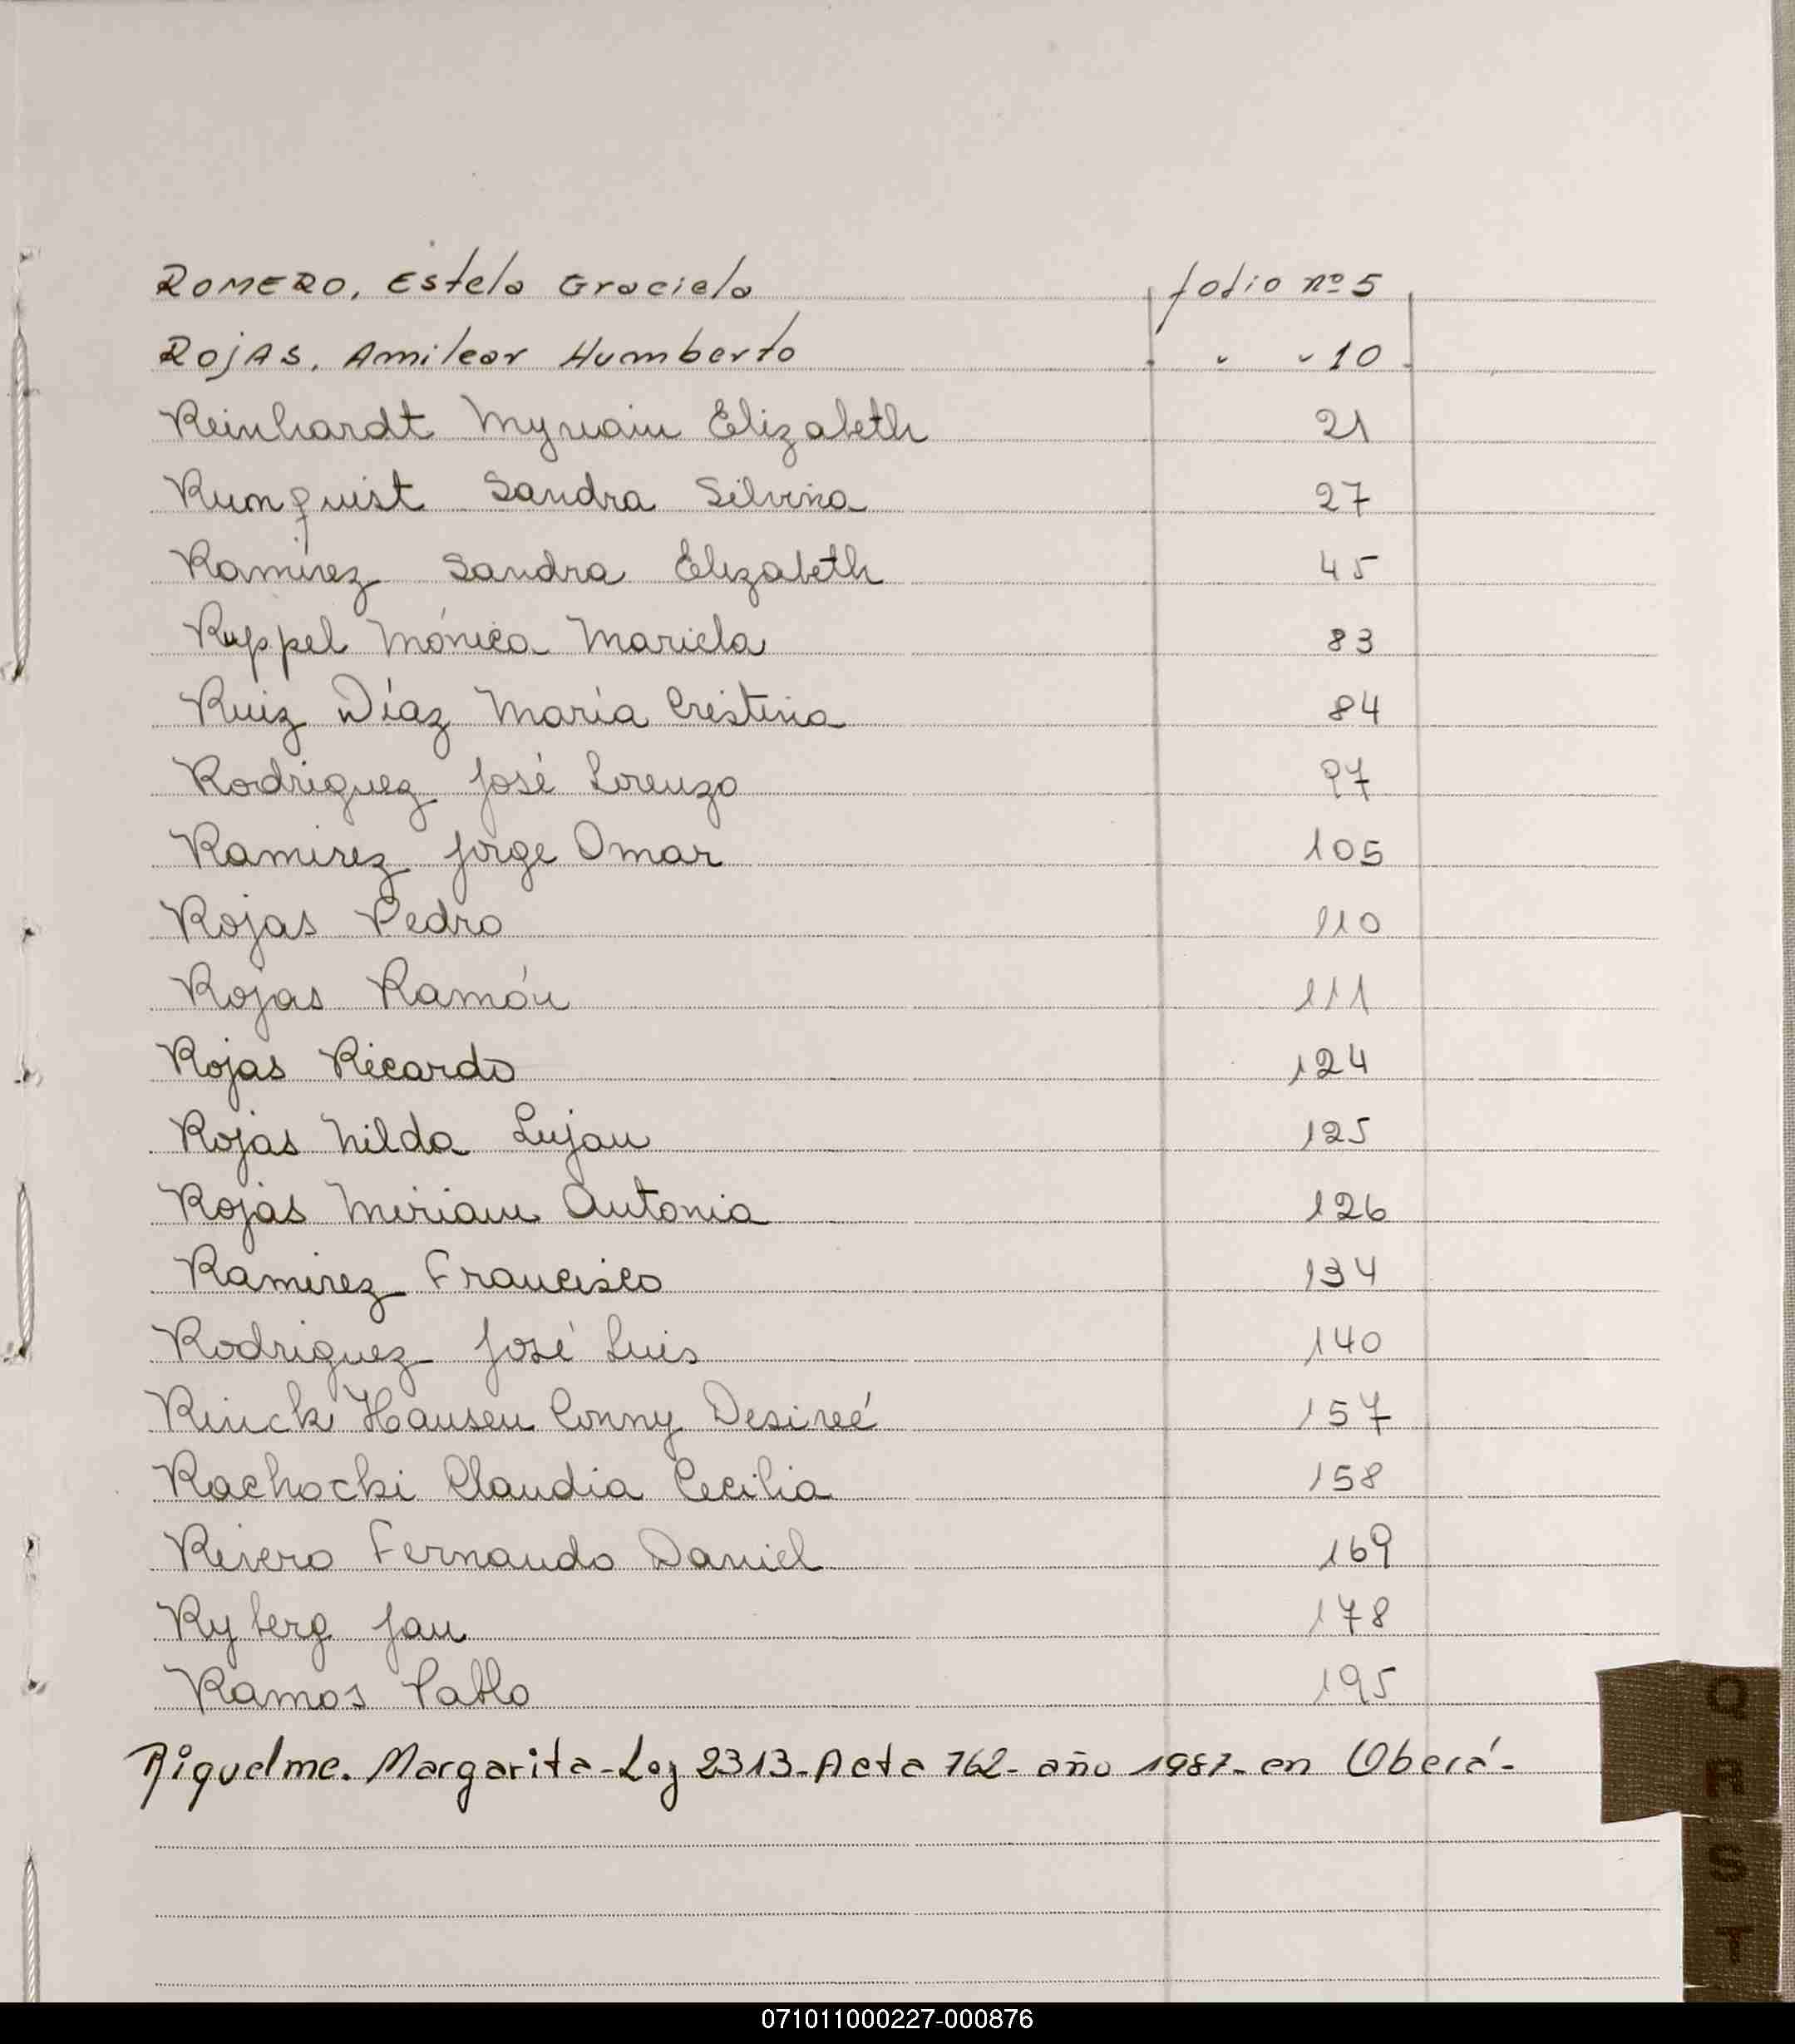 ROMERO, Estela Graciela folio nº 5
ROJAS, Amilcar Humberto " " 10
Reinhardt Myriam Elizabeth 21
Runquist Sandra Silvina 27
Ramírez Sandra Elizabeth 45
Ruppel Mónica Mariela 83
Ruiz Díaz María Cristina 84
Rodriguez José Lorenzo 97
Ramirez Jorge Omar 105
Rojas Pedro 110
Rojas Ramón 111
Rojas Ricardo 124
Rojas Nilda Lujan 125
Rojas Miriam Antonia 126
Ramirez Francisco 134
Rodriguez José Luis 140
Rinck Hansen Conny Desireé 157
Rachocki Claudia Cecilia 158
Rivero Fernando Daniel 169
Ryberg Jan 178
Ramos Pablo 195
Riquelme. Margarita - Leg 2313 - Acta 762 - año 1987 - en Oberá -
Q
R
S
T
071011000227-000876